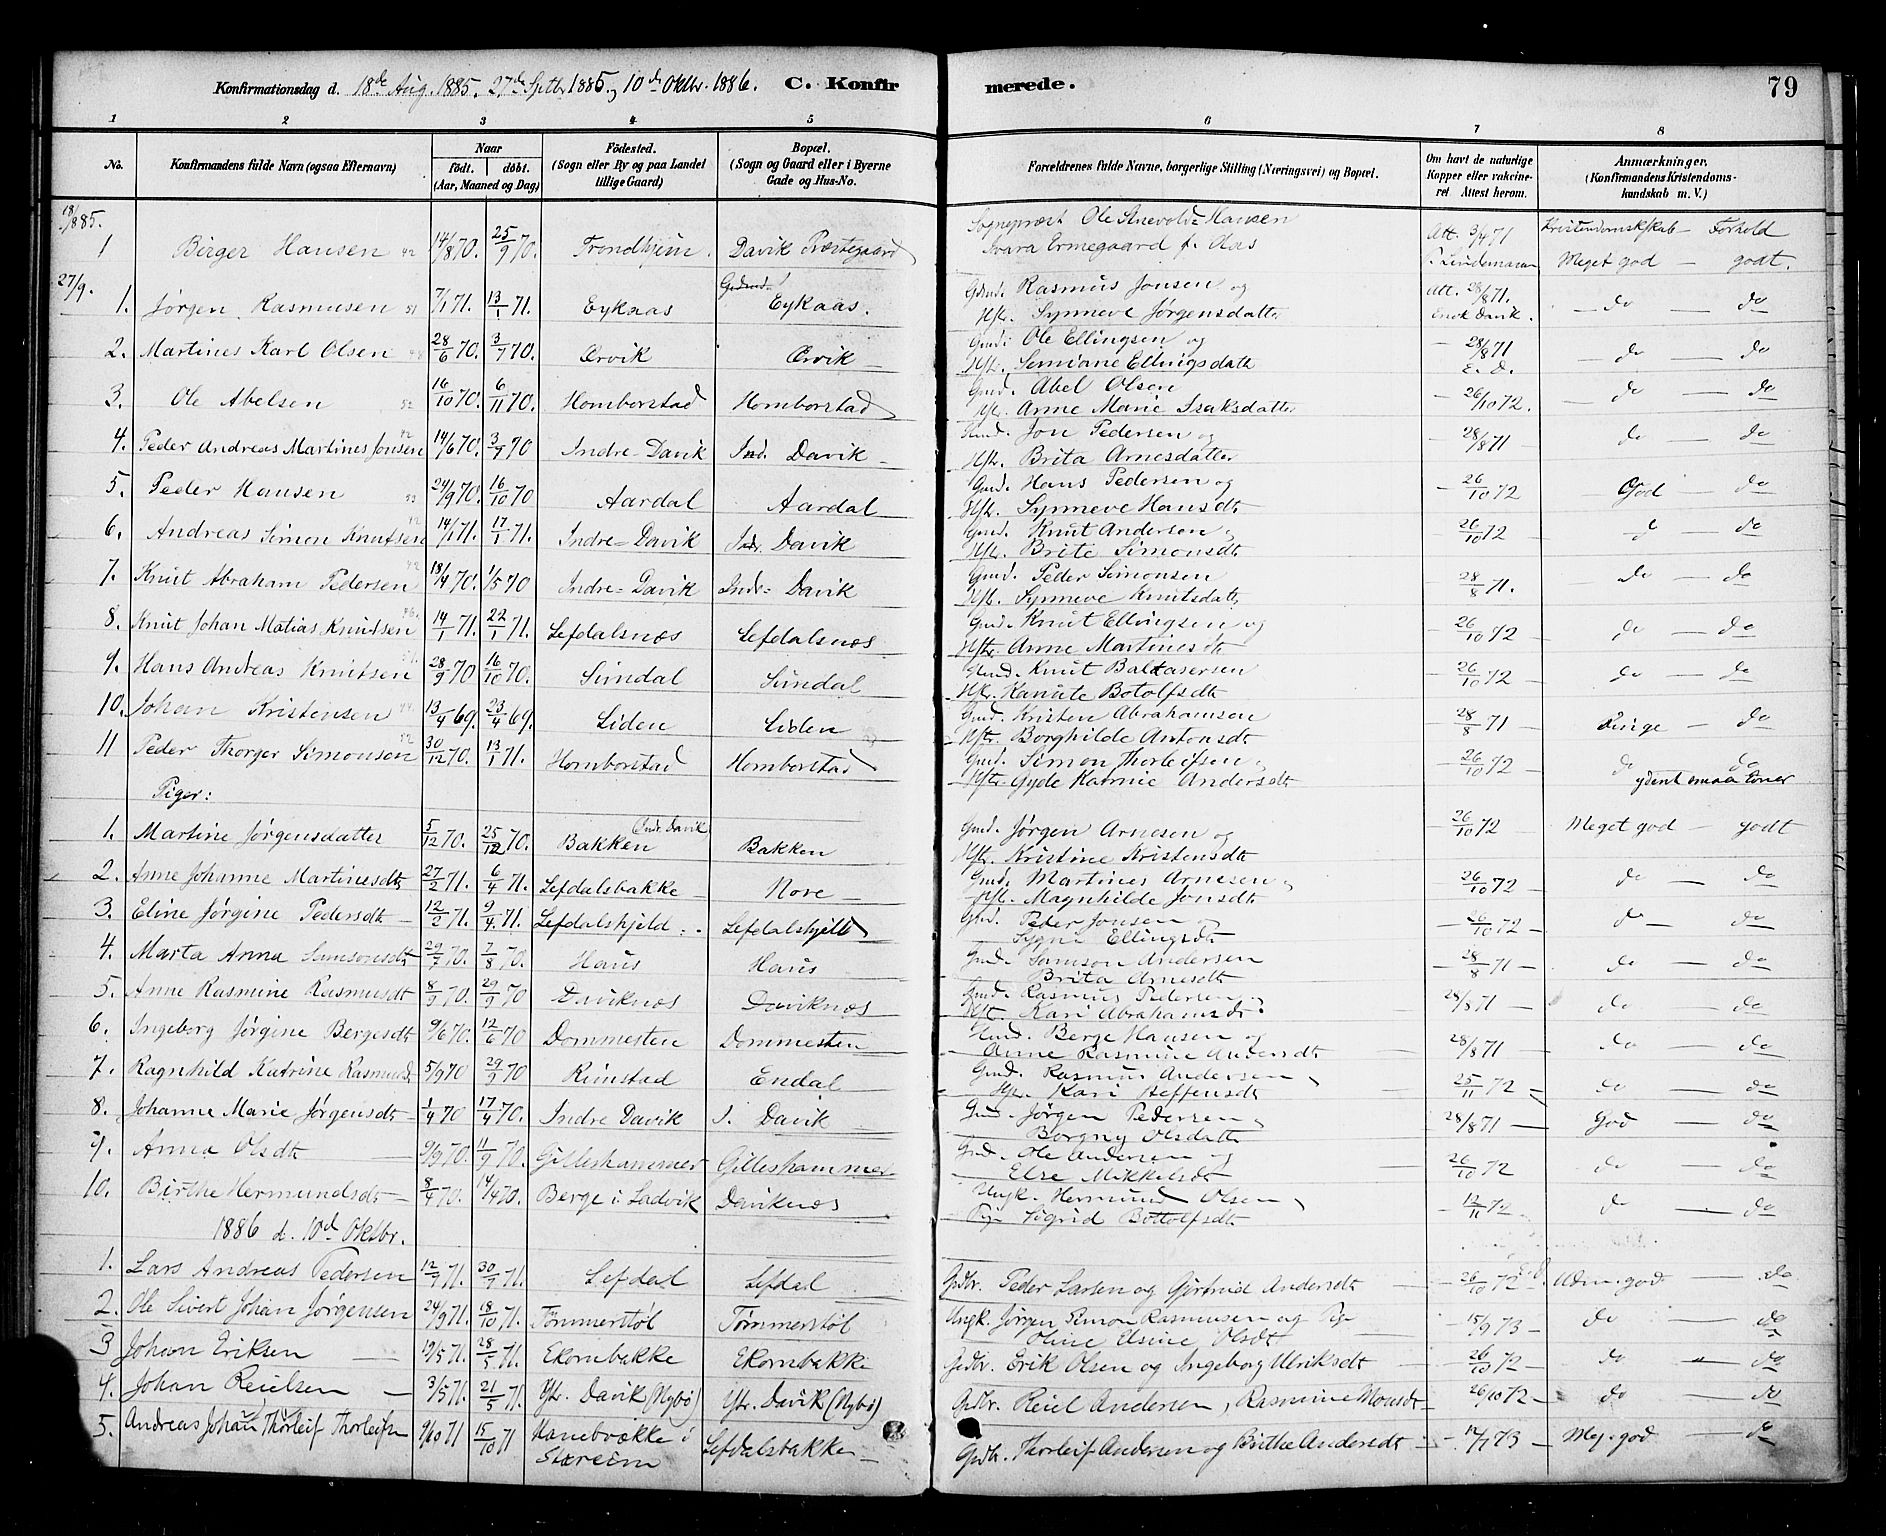 Konfirmationsdag d. 18de Aug. 1885. 27de Septbr 1885, 10de Oktbr. 1886. C. Konfirmerede. 79
1 2 3 4 5 6 7 8
No. Konfirmandens fulde Navn (ogsaa Efternavn) Naar født. døbt. (Aar, Maaned og Dag) Födested. (Sogn eller By og paa Landet tillige Gaard) Bopæl. (Sogn og Gaard eller i Byerne Gade og Hus-No. Forældrenes fulde Navne, borgerlige Stilling (Næringsvei) og Bopæl. Om havt de naturlige Kopper eller vakcineret Attest herom. Anmærkninger. (Konfirmandens Kristendomskundskab m. V.)
18/8 85. Sognepræst Ole Hansen Att. 3/4 71 Kristendomskskab - Forhold
1 Birger Hansen 14/8 70. 25/9 70. Trondhjem. Davik Præstegaard Ermegaard f. Aas Lindemann Meget god - godt.
27/9.
1. Jørgen Rasmusen 7/1 71. 13/1 71. Eykaas Eykaas. Gdmd. Rasmus Jonsen og Att. 28/8 71. - do - do
Hstr. Synneve Jørgensdatter Davik.
2. Martines Karl Olsen 28/6 70. 3/7 70. Ørvik Ørvik Gmd. Ole Ellingsen og - 28/8 71 - do - do
Hstr. Semiane Ellingsdatt E. D.
3. Ole Abelsen 16/10 70. 6/11 70. Homborstad Homborstad Gmd. Abel Olsen - 26/10 72. - do - do
Hst. Anne Marie Isaksdatter
4. Peder Andreas Martines Jonsen 14/6 70. 3/7 70 Indre-Davik Ind. Davik Gmd. Jon Pedersen og - 28/8 71 do - do
Hstr. Brita Arnesdatter
5. Peder Hansen 24/9 70. 16/10 70 Aardal Aardal Gmd. Hans Pedersen og - 26/10 72 - God - do
Hstr. Synneve Hansdt
6. Andreas Simon Knutsen 14/1 71. 17/1 71. Indre-Davik Indr. Davik Gmd. Knut Andersen, 26/10 72 do do
Hstr. Brite Simonsdt
7. Knut Abraham Pedersen 18/4 70. 1/5 70 Indre-Davik Indr- Davik Gmd. Peder Simonsen 28/8 71. - do - do
Hst. Synneve Knutsdatt
8. Knut Johan Matias Knudsen 14/1 71. 22/1 71. Lefdalsnæs Lefdalsnæs Gmd. Knut Ellingsen og - 26/10 72 do - do
Hstr. Anne Martinesdt
9. Hans Andreas Knutsen 28/9 70 16/10 70. Sundal Sundal Gmd. Knut Baltasersen - 26/10 72 do - do
Hstr. Hanute Botolfsdt
10. Johan Kristensen 13/4 69. 23/4 69. Liden Liden Gmd. Kristen Abrahamsen - 28/8 71 - do
Hstr. Borghilde Antonsdt
11 Peder Thorger Simonsen 30/12 70. 13/1 71. Homborstad Homborstad Gmd. Simon Thorleifsen, 26/10 72 do do
Hstr. Gyde Andersdt ydent smaa
Piger:
1. Martine Jørgensdatter 5/12 70. 25/12 70. Indr. Davik Bakken Bakken Gmd. Jørgen Arnesen og - 26/10 72 Meget god - godt
Hstr. Kristine Kristensdt
2. Anne Johanne Martinesdt 27/2 71. 6/4 71. Lefdalsbakke Nore Gmd. Martines Arnesen, 26/10 72 - do - do
Hst. Magnhilde Jonsdt
3. Eline Jørgine Pedersdt 12/2 71. 9/4 71. Lefdalshjeld Lefdalshjell Gmd. Peder Jonsen - 26/10 72 - do - do
Ellingsdt
4. Marta Anna Samsonsdt 29/7 70. 7/8 70. Haus Haus Gmd. Samson Andersen - 28/8 71 - do - do
Brita Arnesdt
5. Anne Rasmine Rasmusdt 8/9 70. 29/9 70 Daviknæs Daviknæs Gmd. Rasmus Pedersen, 28/8 71 - do - do
Hst. Kari Abrahamsdt.
6. Ingeborg Jørgine Bergesdt 9/6 70. 12/6 70 Dommesten Dommesten Gmd. Berge Hansen og - 28/8 71 do - do
Anne Rasmine Andersdt
7. Ragnhild Katrine Rasmusd 5/9 70 29/9 70 Rimstad Endal Gmd. Rasmus Andersen, 25/11 72 - do - do
Hstr. Kari Steffensdt
8. Johanne Marie Jørgensdt 1/4 70 17/4 70. Indre Davik I. Davik Gmd. Jørgen Pedersen, 28/8 71 - God - do
Borgny Olsdatt
9. Anna Olsdt 9/9 70. 11/9 70. Gilleshammer Gilleshammer Gmd. Ole Andersen og - 26/10 72 do - do
Else Mikkelsdt
10. Birthe Hermundsdt 8/4 70. 14/4 70. Berge i Ladvik Daviknæs Ungk. Hermund Olsen, - 12/11 72 do - do
Pige Sigrid Bottolfsdt
1886 d. 10d Oktbr.
1. Lars Andreas Pedersen 12/7 71. 30/7 71. Lefdal Lefdal Grdbr. Peder Larsen og Gjertrud Andersdt - 26/10 72 Udm. god. - do
2. Ole Sivert Johan Jørgensen 24/9 71. 18/10 71. Tømmerstøl Tømmerstøl Ungk. Jørgen Simon Rasmussen og Pige - 15/9 73 - do - do
Oline Elsine Olsdt
3 Johan Eriksen 19/5 71. 28/5 71. Ekornbakke Ekornbakke Grdbr. Erik Olsen og Ingeborg Ulriksdt - 26/10 72 - do " do
4. Johan Reielsen 3/5 71. 21/5 71. Ytr. Davik (Nybø) Ytr. Davik (Nybø) Grdbr. Reiel Andersen, Rasmine Monsdt 26/10 72 - do - do
5. Andreas Johan Thorleif Thorleifsen 9/10 71 15/10 71 i Lefdalsbakken Grdbr. Thorleif Andersen og Birthe Andersdt - 73 - Meg. god - do
Stæreim